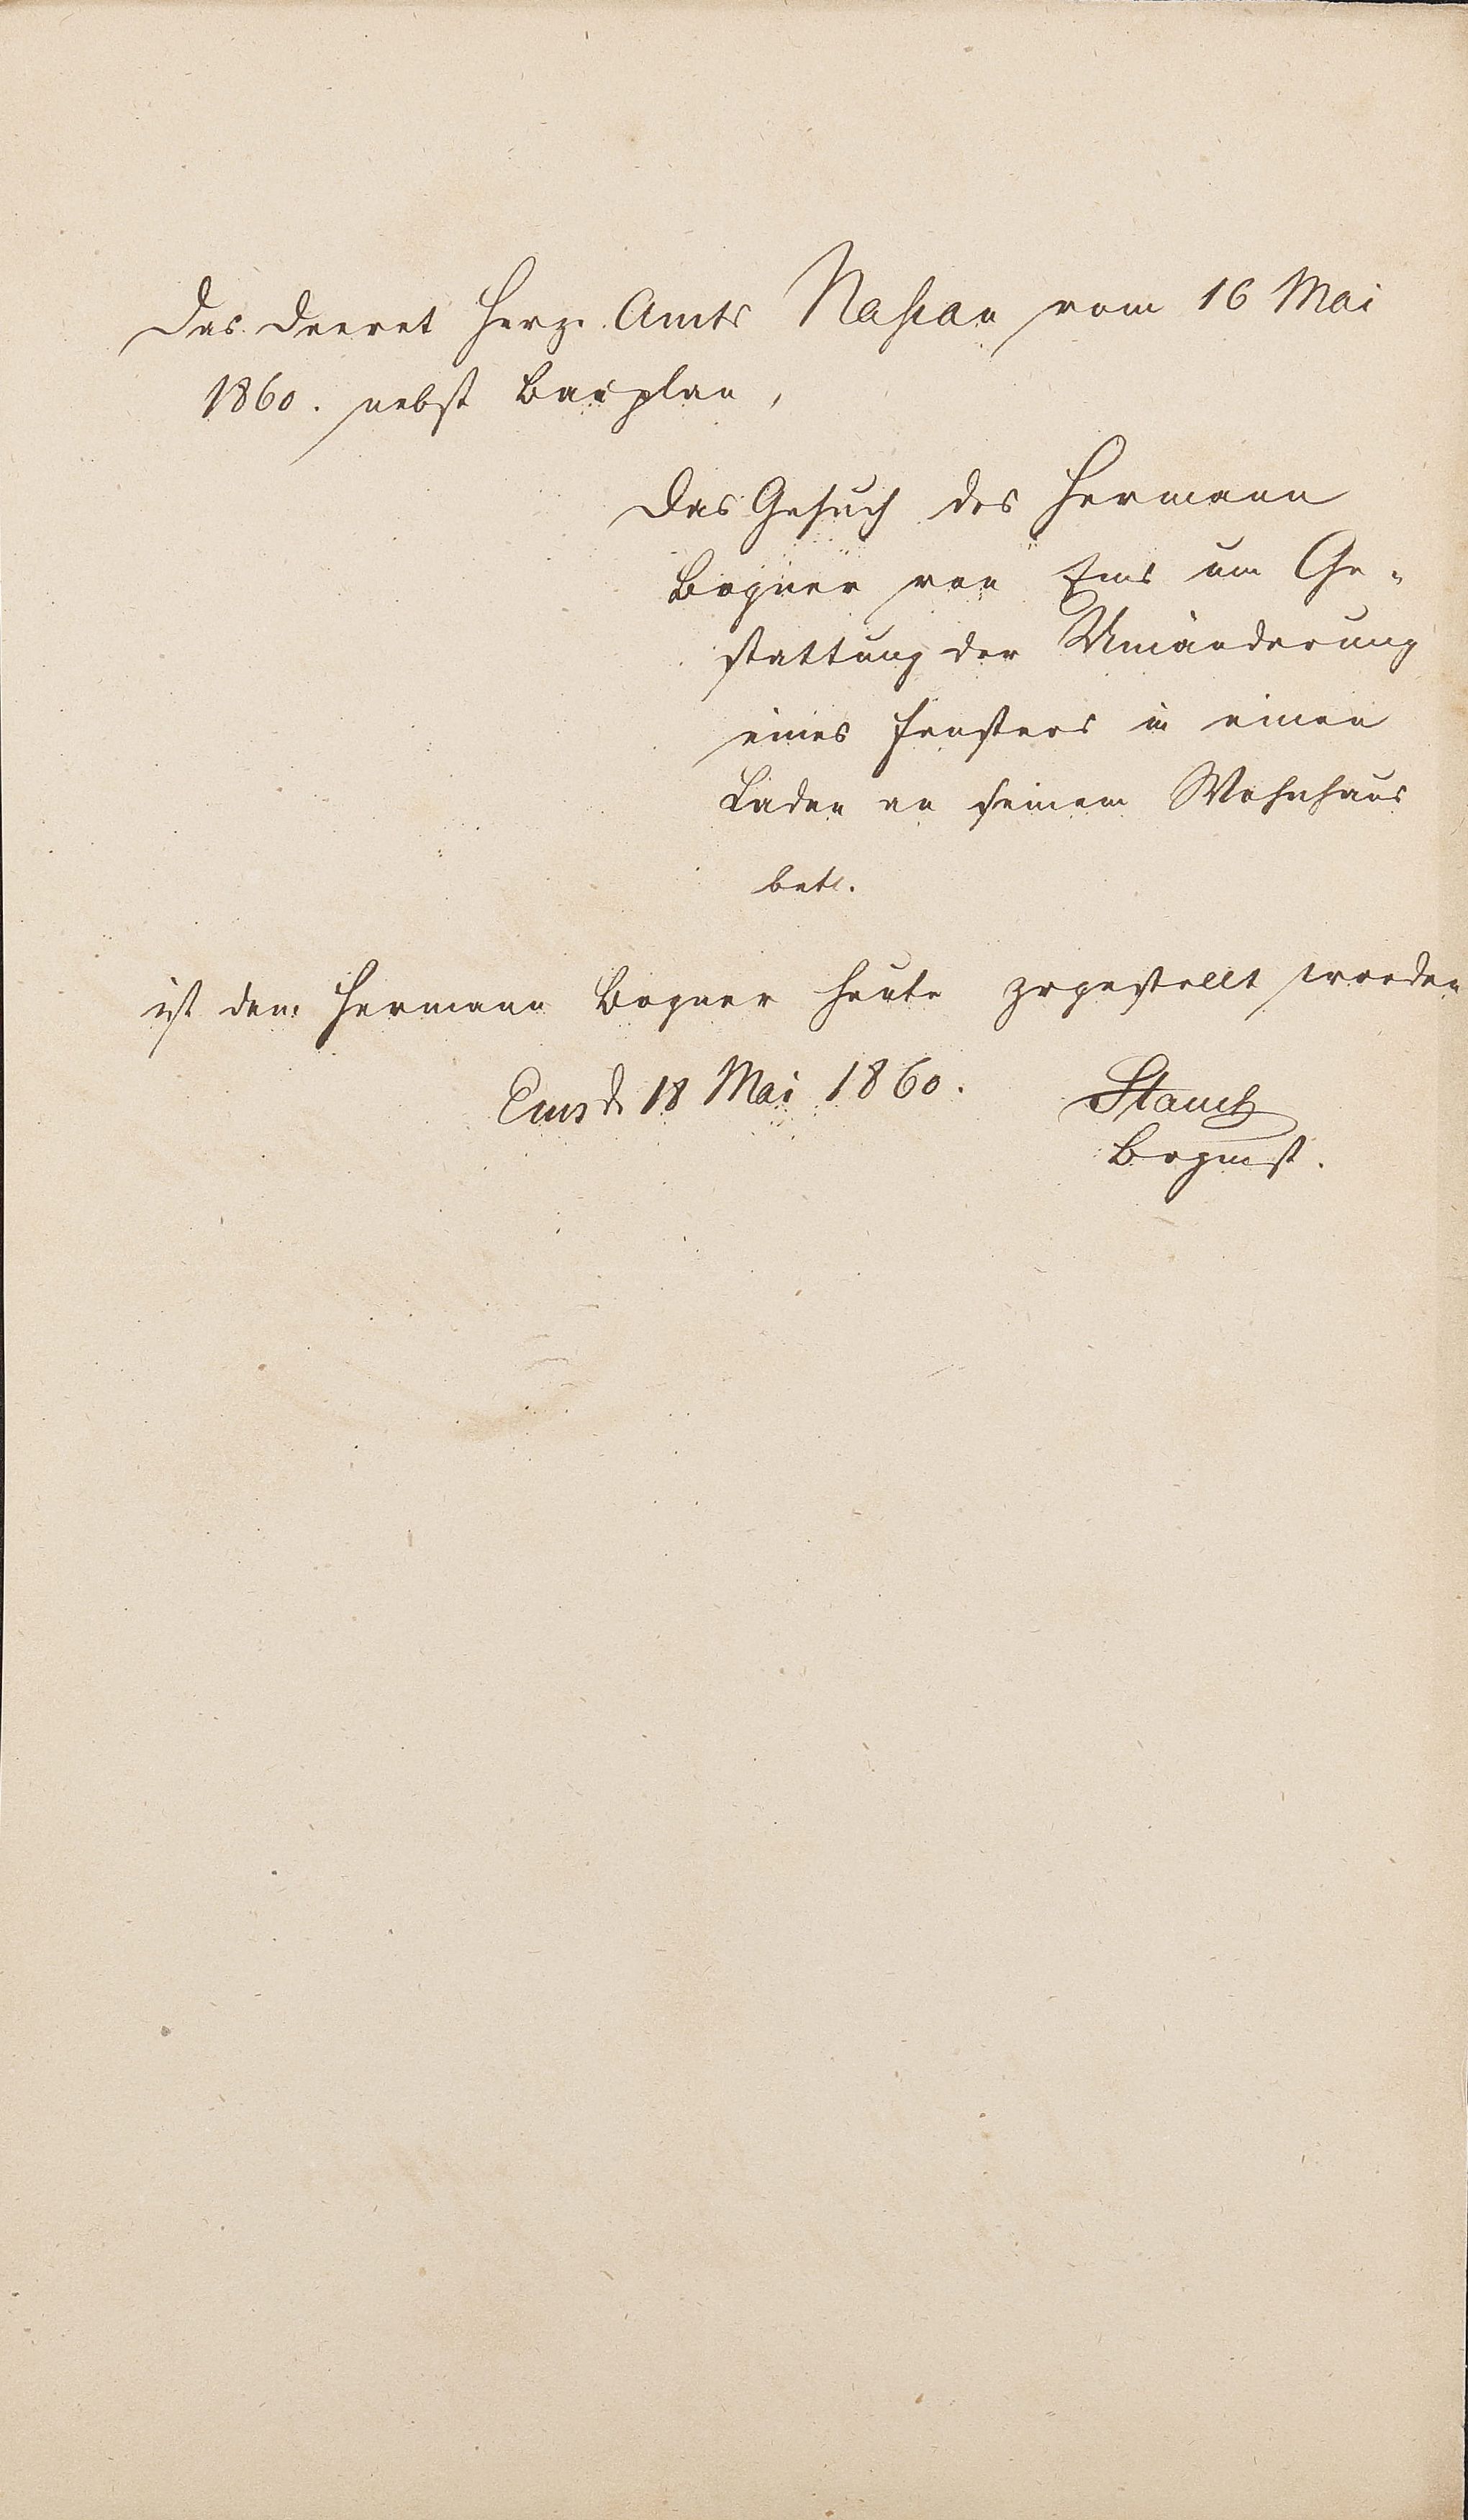 Das Decret Herz. Amts Nassau vom 16 Mai
1860. nebst Bauplan,
Das Gesuch des Hermann
Bogner von Ems um Ge-
stattung der Umänderung
eines Fensters in einen
Laden an seinem Wohnhaus
betr.
ist dem Hermann Bogner heute zugestellt worden
Ems d. 18 Mai 1860.
Stauch
Brgmst.